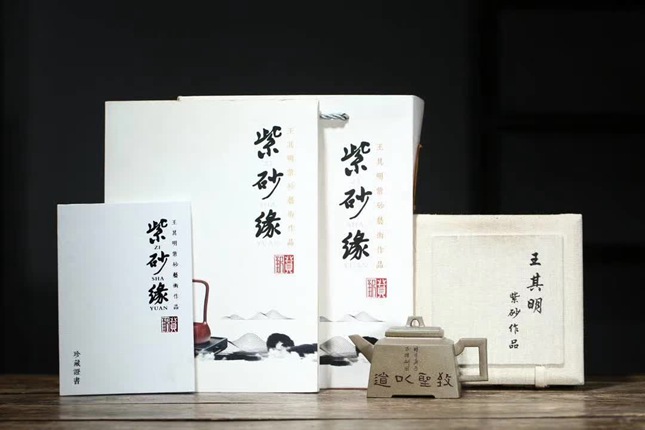 王其明紫砂藝術作品
紫砂缘
ZI
SHA
YUAN
珍藏證書
王其明紫砂藝術作品
紫砂缘
YUAN
王其明紫砂藝術作品
紫砂缘
YUAN
王其明
紫砂作品
道以聖教